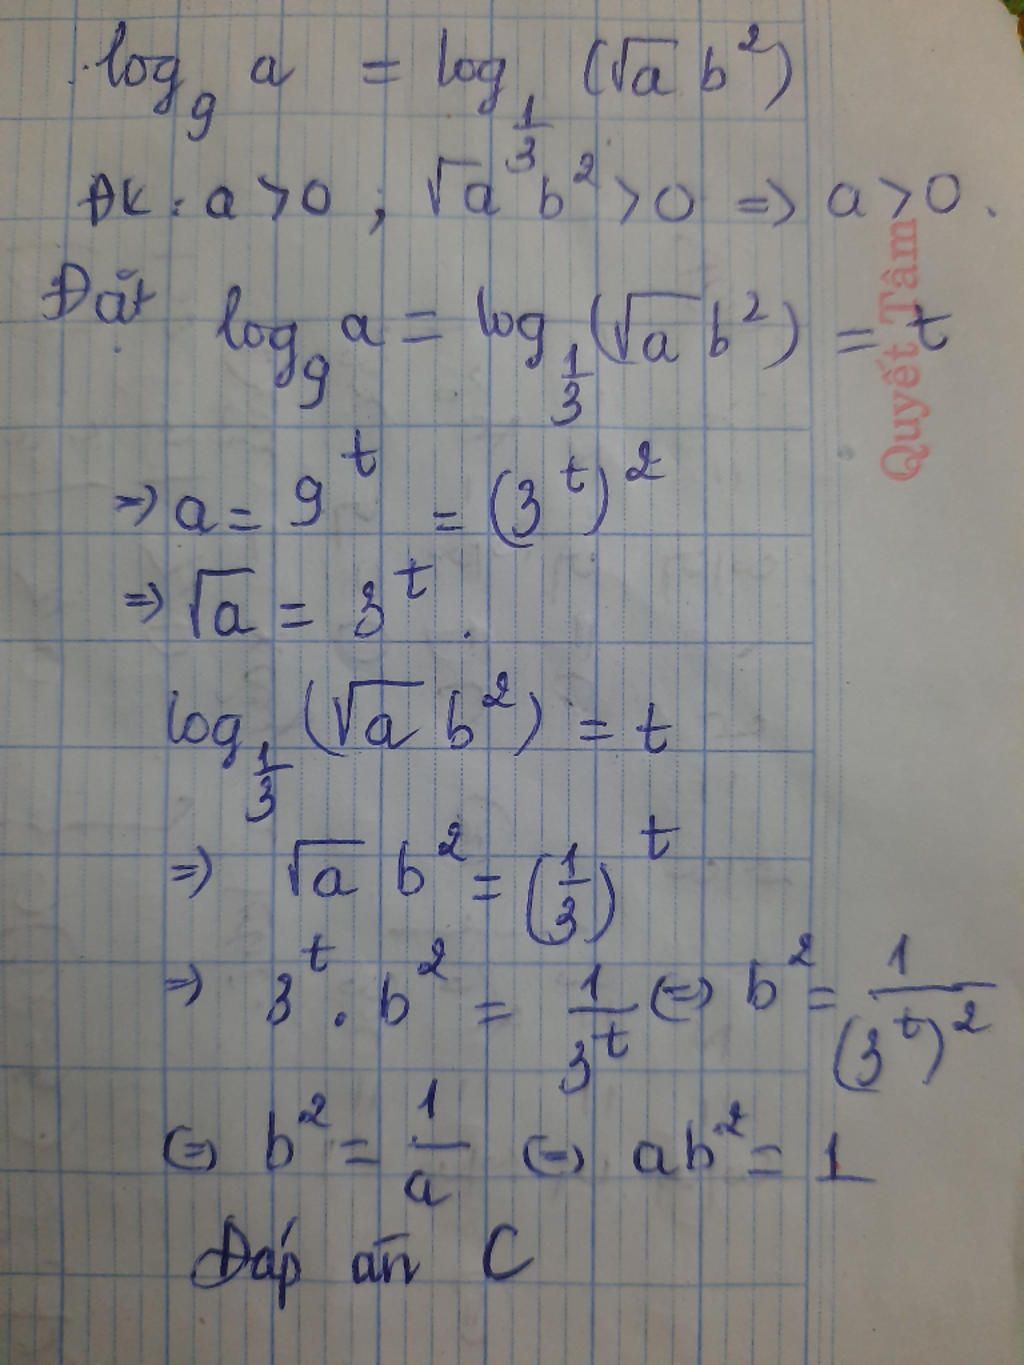 log₉ a = log_{1/3} (√a b²)
ĐK : a > 0 ; √a b² > 0 => a > 0.
Đặt log₉ a = log_{1/3} (√a b²) = t
=> a = 9^t = (3^t)²
=> √a = 3^t.
log_{1/3} (√a b²) = t
=> √a b² = (1/3)^t
=> 3^t . b² = 1/3^t <=> b² = 1/(3^t)²
<=> b² = 1/a <=> ab² = 1
Đáp án C
Quyết Tâm